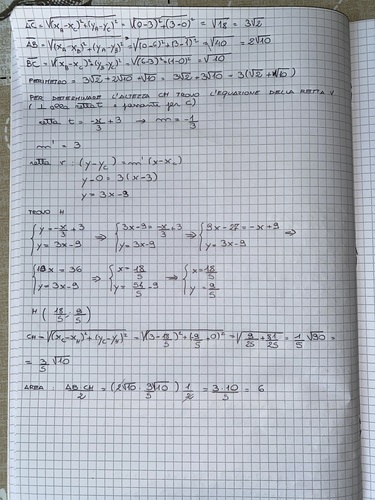 AC = √(x_A-x_C)²+(y_A-y_C)² = √(0-3)²+(3-0)² = √18 = 3√2
AB = √(x_A-x_B)²+(y_A-y_B)² = √(0-6)²+(3-1)² = √40 = 2√10
BC = √(x_B-x_C)²+(y_B-y_C)² = √(6-3)²+(1-0)² = √10
PERIMETRO = 3√2 + 2√10 + √10 = 3√2 + 3√10 = 3(√2 + √10)
PER DETERMINARE L'ALTEZZA CH TROVO L'EQUAZIONE DELLA RETTA r
(⊥ alla retta t e passante per C)
retta t = -x/3 + 3 → m = -1/3
m' = 3
retta r : (y-y_C) = m'(x-x_C)
y-0 = 3(x-3)
y = 3x-9
TROVO H
{y = -x/3 + 3 ; y = 3x-9 ⇒ {3x-9 = -x/3 + 3 ; y = 3x-9 ⇒ {9x-27 = -x+9 ; y = 3x-9 ⇒
{10x = 36 ; y = 3x-9 ⇒ {x = 18/5 ; y = 54/5 - 9 ⇒ {x = 18/5 ; y = 9/5
H (18/5 ; 9/5)
CH = √(x_C-x_H)²+(y_C-y_H)² = √(3-18/5)²+(9/5+0)² = √9/25+81/25 = 1/5 √90 =
= 3/5 √10
AREA : AB·CH/2 = (2√10 · 3√10/5) 1/2 = 3·10/5 = 6